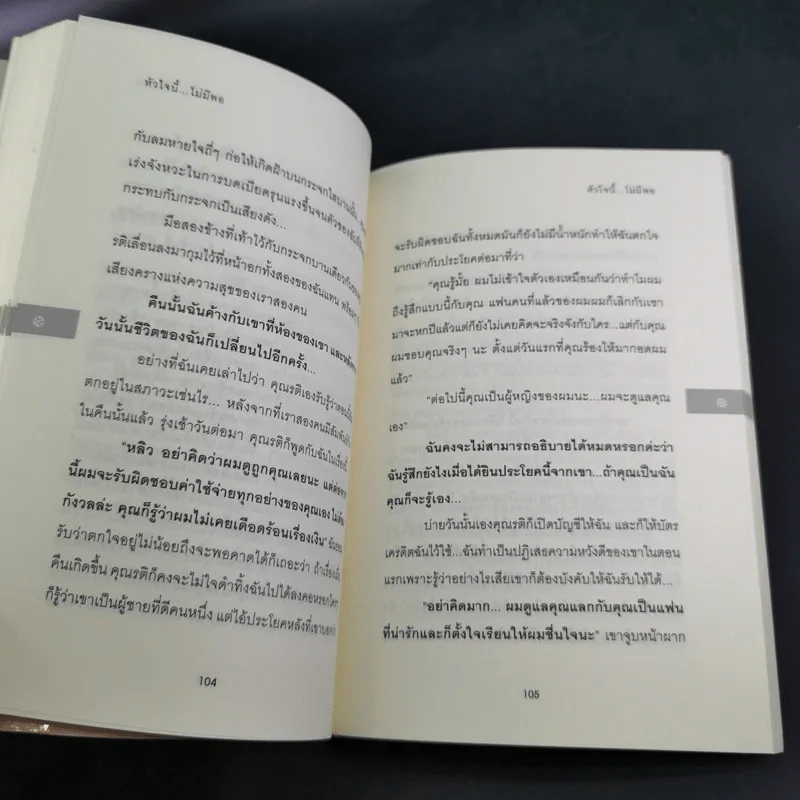 หัวใจนี้...ไม่มีพอ
กับลมหายใจถี่ๆ ก่อให้เกิดฝ้าบนกระจกใสบานนั้น
เร่งจังหวะในการบดเบียดรุนแรงขึ้นจนตัวของฉัน
กระทบกับกระจกเป็นเสียงดัง...
มือสองข้างที่เท้าไว้กับกระจกบานเดียวกัน
รติเลื่อนลงมากุมไว้ที่หน้าอกทั้งสองของฉันแทน
เสียงครางแห่งความสุขของเราสองคน
คืนนั้นฉันค้างกับเขาที่ห้องของเขา
วันนั้นชีวิตของฉันก็เปลี่ยนไปอีกครั้ง...
อย่างที่ฉันเคยเล่าไปว่า คุณรติเองรับรู้ว่า
ตกอยู่ในสภาวะเช่นไร... หลังจากที่เราสองคนมีสัมพันธ์
ในคืนนั้นแล้ว รุ่งเช้าวันต่อมา คุณรติก็พูดกับฉันในเรื่องนี้
"หลิว อย่าคิดว่าผมดูถูกคุณเลยนะ แต่ต่อ
นี้ผมจะรับผิดชอบค่าใช้จ่ายทุกอย่างของคุณเอง ไม่ต้อง
กังวลล่ะ คุณก็รู้ว่าผมไม่เคยเดือดร้อนเรื่องเงิน"
รับว่าตกใจอยู่ไม่น้อยถึงจะพอคาดได้ก็เถอะว่า ถ้าเรื่อง
คืนเกิดขึ้น คุณรติก็คงจะไม่ใจดำทิ้งฉันไปได้ลงคอหรอก
ก็รู้ว่าเขาเป็นผู้ชายที่ดีคนหนึ่ง แต่ไอ้ประโยคหลังที่เขาบอกว่า
104
หัวใจนี้...ไม่มีพอ
จะรับผิดชอบฉันทั้งหมดมันก็ยังไม่มีน้ำหนักทำให้ฉันตกใจ
มากเท่ากับประโยคต่อมาที่ว่า
"คุณรู้มั้ย ผมไม่เข้าใจตัวเองเหมือนกันว่าทำไมผม
ถึงรู้สึกแบบนี้กับคุณ แฟนคนที่แล้วของผมผมก็เลิกกับเขา
มาจะหกปีแล้วแต่ก็ยังไม่เคยคิดจะจริงจังกับใคร...แต่กับคุณ
ผมชอบคุณจริงๆ นะ ตั้งแต่วันแรกที่คุณร้องไห้มากอดผม
แล้ว"
"ต่อไปนี้คุณเป็นผู้หญิงของผมนะ...ผมจะดูแลคุณ
เอง"
ฉันคงจะไม่สามารถอธิบายได้หมดหรอกค่ะว่า
ฉันรู้สึกยังไงเมื่อได้ยินประโยคนี้จากเขา...ถ้าคุณเป็นฉัน
คุณก็จะรู้เอง...
บ่ายวันนั้นเองคุณรติก็เปิดบัญชีให้ฉัน และก็ให้บัตร
เครดิตฉันไว้ใช้...ฉันทำเป็นปฏิเสธความหวังดีของเขาในตอน
แรกเพราะรู้ว่าอย่างไรเสียเขาก็ต้องบังคับให้ฉันรับให้ได้...
"อย่าคิดมาก... ผมดูแลคุณแลกกับคุณเป็นแฟน
ที่น่ารักและก็ตั้งใจเรียนให้ผมชื่นใจนะ" เขาจูบหน้าผาก
105